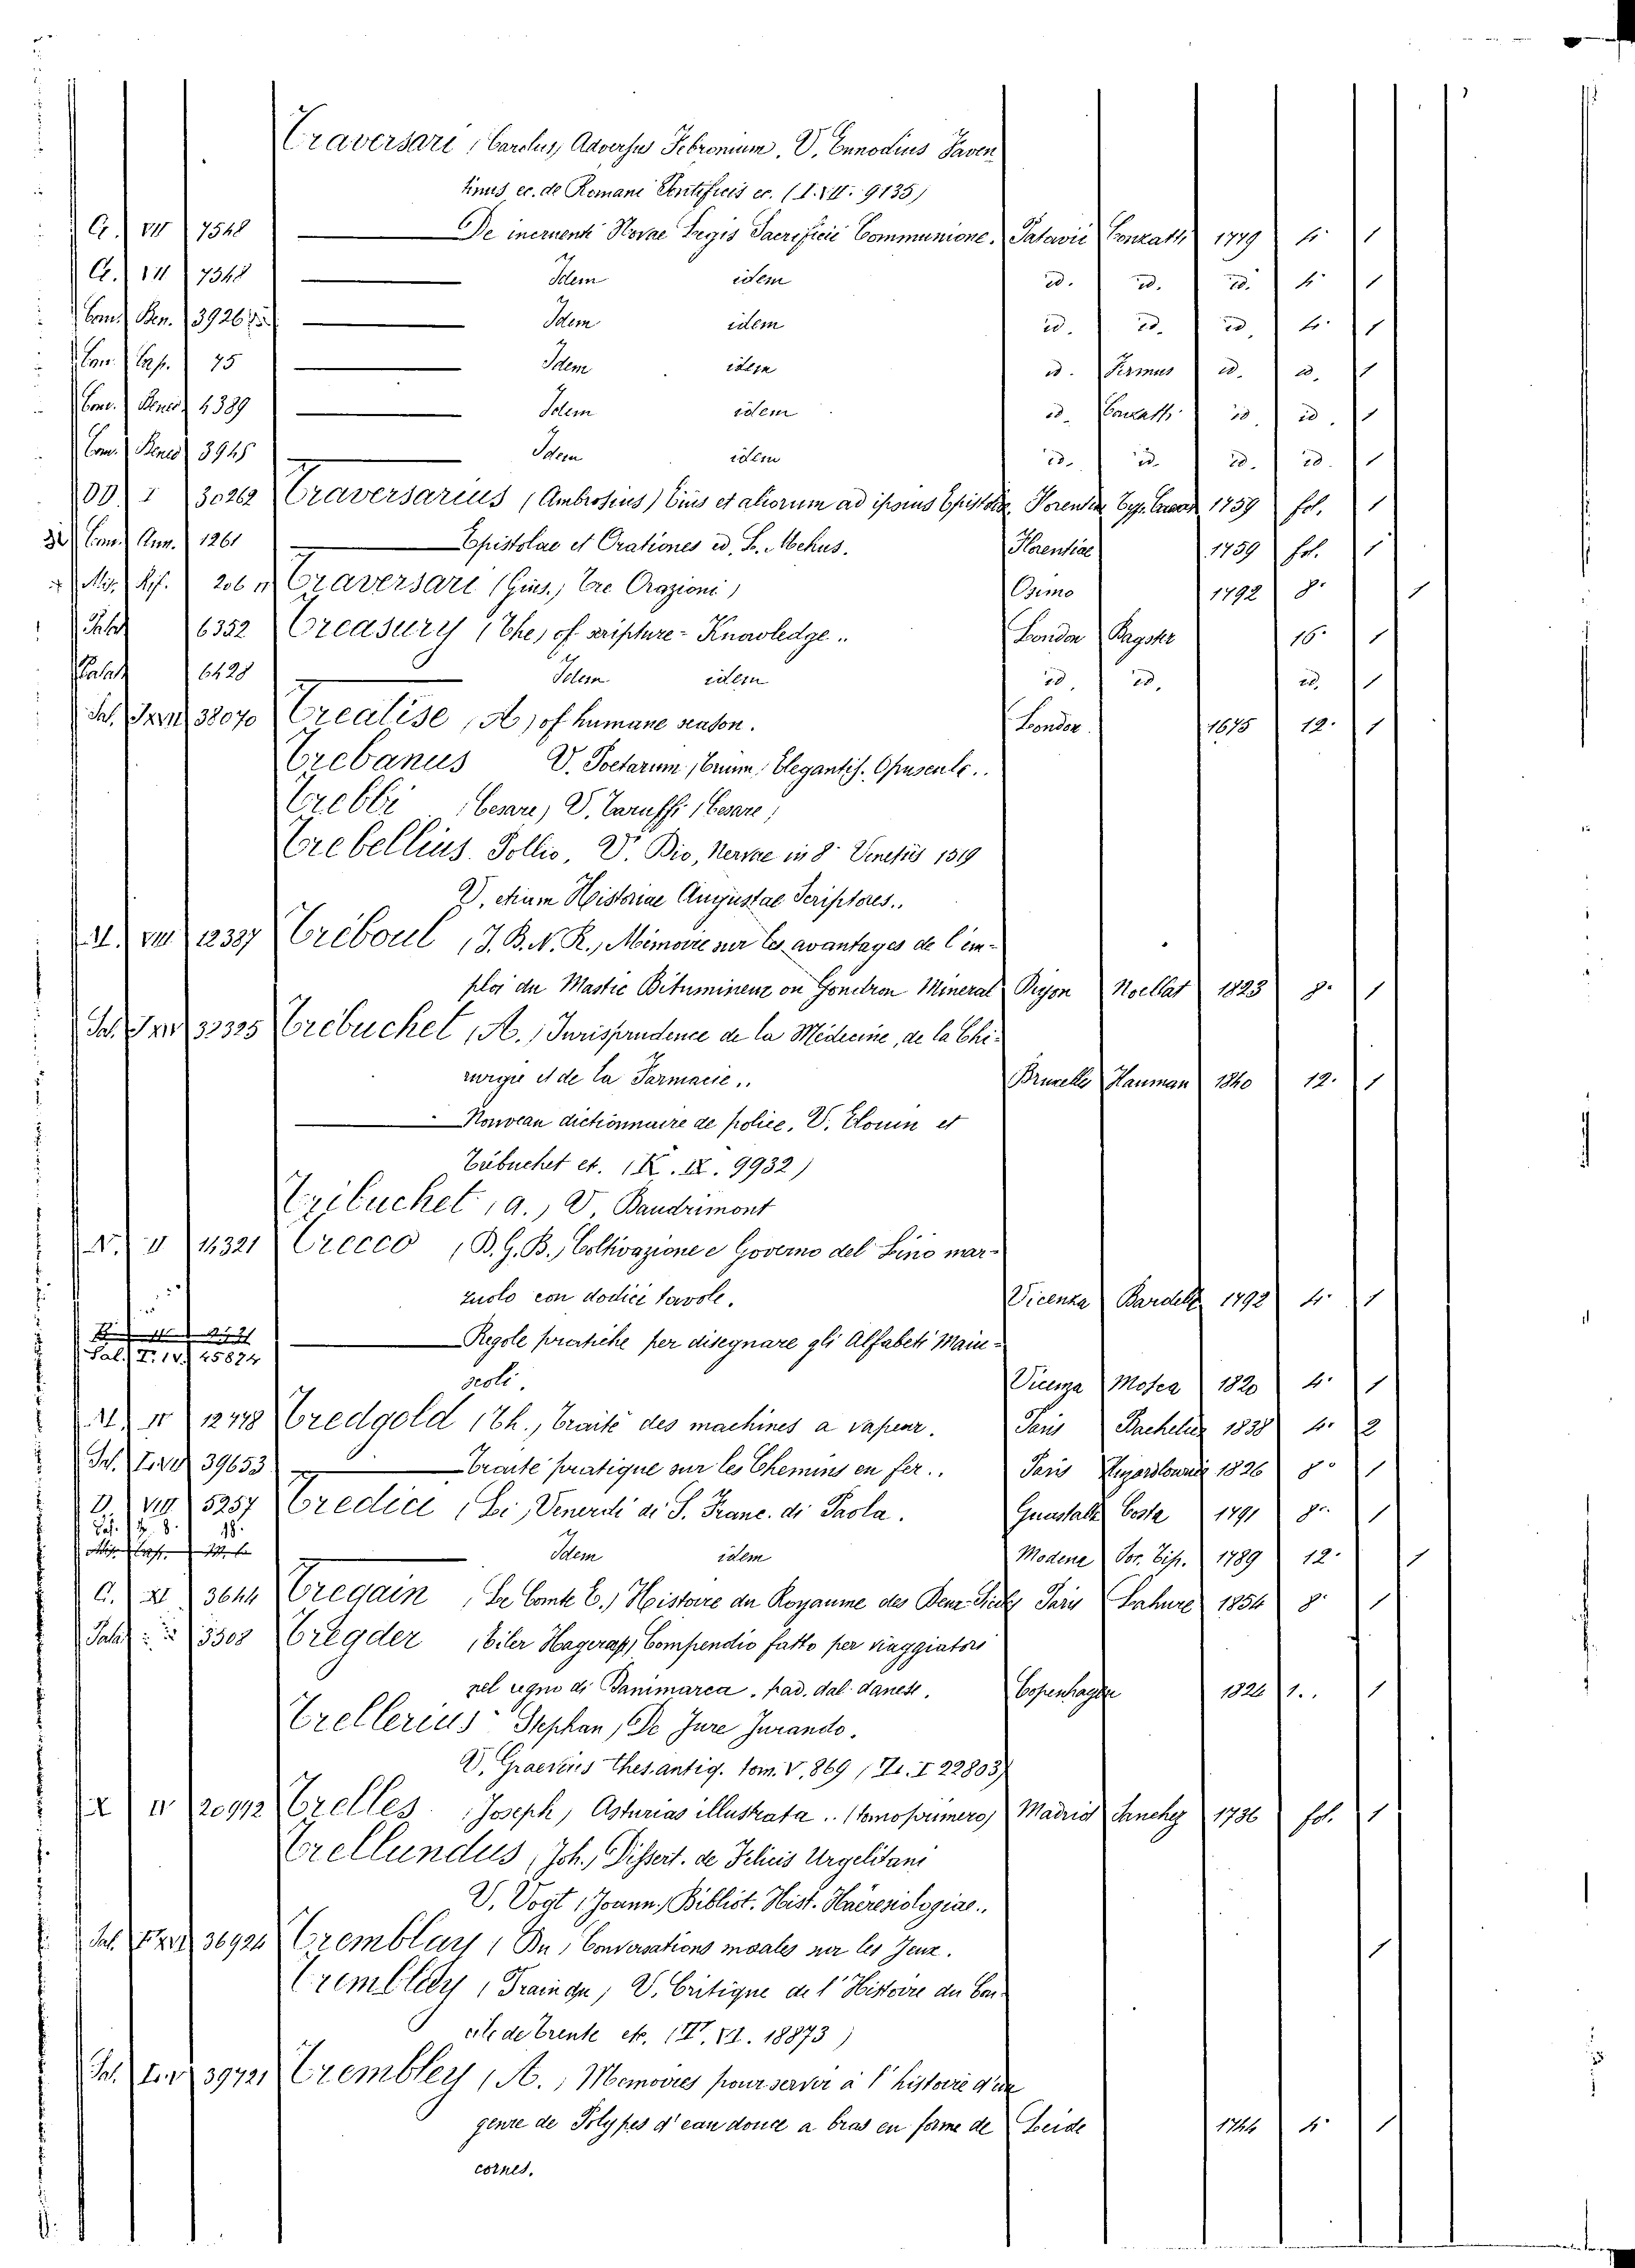 Traversari (Carolus) Adversus Febronium. V. Ennodius Faven
tinus ec. de Romani Pontificis ec. (I. VII. 9135)
G. VII 7548 De incruenti Novae Legis Sacrificii Communione. Patavii Conzatti 1779 4. 1
G. VII 7548 Idem idem id. id. id. 4. 1
Com. Ben. 3926 Idem idem id. id. id. 4. 1
Con. Cap. 75 Idem idem id. Firmus id. id. 1
Com. Bened. 4389 Idem idem id. Conzatti id. id. 1
Com. Bened. 3945 Idem idem id. id. id. id. 1
DD. I 30262 Traversarius (Ambrosius) Eius et aliorum ad ipsius Epistolae Florentiae Typ. Caesar. 1759 fol. 1
Com. Ann. 1261 Epistolae et Orationes ed. L. Mehus. Florentiae 1759 fol. 1
Mis. Rif. 206 Traversari (Gius.) Tre Orazioni) Osimo 1792 8. 1
Palat. 6352 Treasury (The) of scripture-Knowledge.. London Bagster 16. 1
Palat. 6428 Idem idem id. id. id. 1
Sal. 38070 Treatise (A) of humane reason. London 1675 12. 1
Trebanus V. Poetarum (Trium) Elegantis. Opuscula..
Trebbi (Cesare) V. Taruffi (Cesare)
Trebellius Pollio, V. Dio, Nervae in 8. Venetiis 1519
V. etiam Historiae Augustae Scriptores..
M. VIII 12387 Tréboul (J. B. N. R.) Mémoire sur les avantages de l'em-
ploi du Mastic Bitumineux ou Goudron Mineral Dijon Noellat 1823 8. 1
Sal. 33325 Trébuchet (A.) Jurisprudence de la Médecine, de la Chi-
rurgie et de la Farmacie.. Bruxelles Hauman 1840 12. 1
Nouveau dictionnaire de police. V. Elouin et
Trébuchet et. (K. IX. 9932)
Tribuchet (A.) V. Baudrimont
N. II 14321 Trecco (B. G. B.) Coltivazione e Governo del Lino mar-
zuolo con dodici tavole. Vicenza Bardella 1792 4. 1
Sal. T. IV. 45874 Regole pratiche per disegnare gli Alfabeti Maiu-
scoli. Vicenza Mosca 1820 4. 1
M. IV 12778 Tredgold (Th.) Traité des machines a vapeur. Paris Bachelier 1838 4. 2
Sal. 39653 Traité pratique sur les Chemins en fer.. Paris 1826 8. 1
D. VIII 5257 Tredici (Li) Venerdì di S. Franc. di Paola. Guastalla Costa 1791 8. 1
Idem idem Modena Soc. Tip. 1789 12. 1
C. XI 3644 Tregain (Le Comte E.) Histoire du Royaume des Deux Siciles Paris Lahure 1854 8. 1
Palat. 3308 Tregder (Eiler Hagerup) Compendio fatto per viaggiatori
nel regno di Danimarca. trad. dal danese. Copenhagen 1826 1.. 1
Trellerius Stephan) De Jure Jurando.
V. Graevius Thes. antiq. tom. V. 869 ( I 22803)
X IV 20972 Trelles (Joseph) Asturias illustrata.. (tomo primero) Madrid Sanchez 1736 fol. 1
Trellundus (Joh.) Dissert. de Felicis Urgelitani
V. Vogt (Joann.) Bibliot. Hist. Haeresiologiae..
Sal. 36924 Tremblay (Du) Conversations morales sur les Jeux. 1
Tremblay (Frain du) V. Critique de l'Histoire du Con-
cile de Trente etc. ( VI. 18873)
Sal. 39721 Trembley (A.) Memoires pour servir à l'histoire d'un
genre de Polypes d'eau douce a bras en forme de Leide 1744 4. 1
cornes.